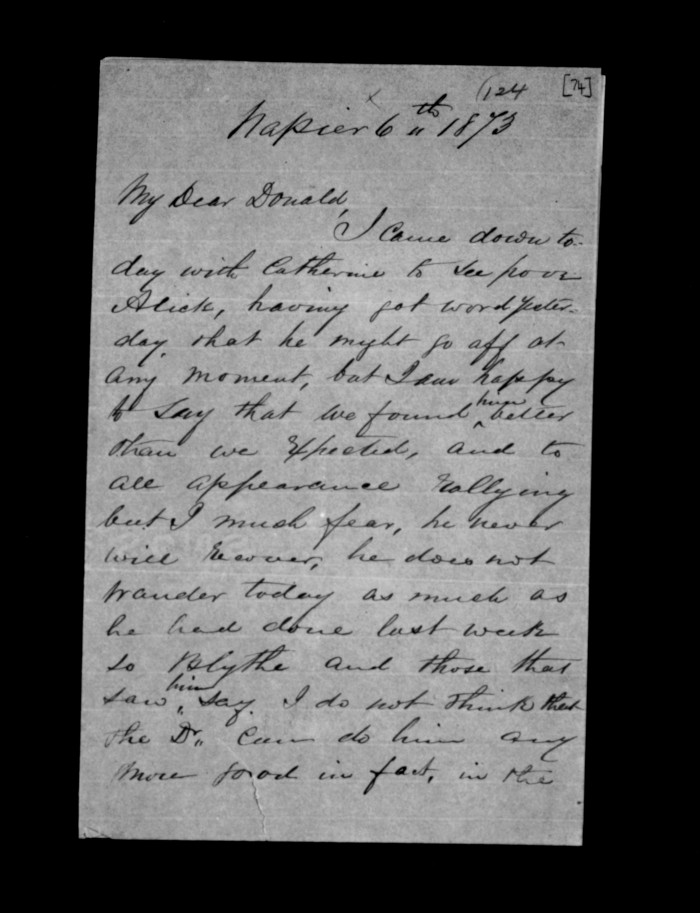 (124
[74]
Napier 6th 1873
My Dear Donald,
I came down to-
day with Catherine to see poor
Alick, having got word yester-
day that he might go off at
any moment, but I am happy
to say that we found him better
than we expected, and to
all appearance rallying
but I much fear, he never
will recover, he does not
wander today as much as
he had done last week
so Blythe and those that
saw him, say. I do not think that
the Dr. can do him any
more good in fact, in the